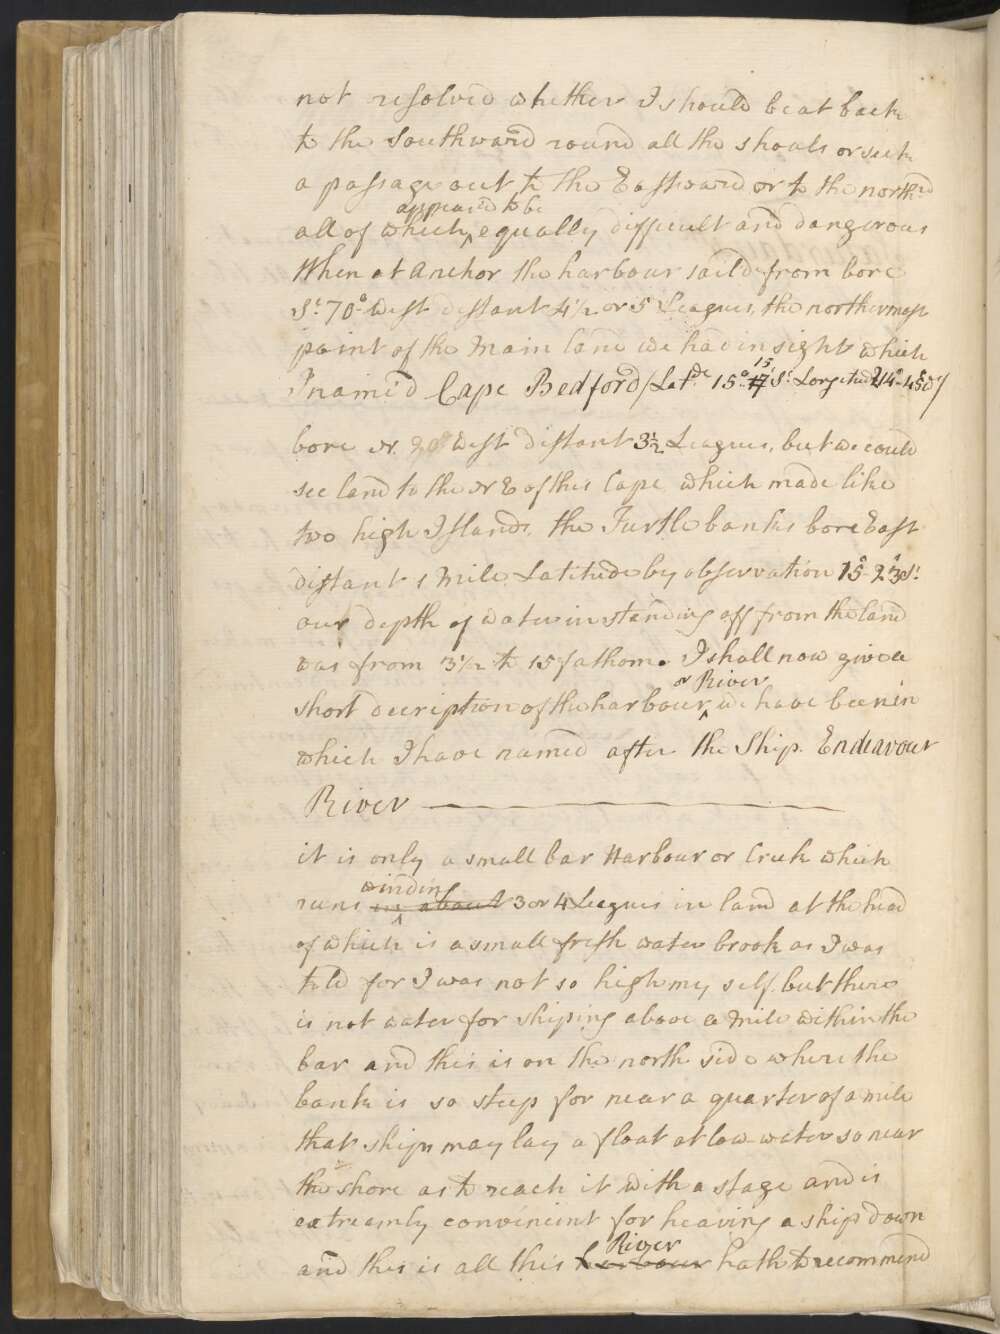 not resolved whether I should beat back
to the Southward round all the shoals or seek
a passage out to the Eastward or to the northd
appear'd to be
all of which equally difficult and dangerous
When at Anchor the harbour sail'd from bore
St. 70° West distant 4 1/2 or 5 Leagues, the northermost
point of the Main land we had in sight which
I named Cape Bedford (Latde 15°.. 15' St. Longitude 214°.. 45' W)
bore N. 20° West distant 3 1/2 Leagues, but we could
see land to the NE of this Cape which made like
two high Islands, the Turtle banks bore East
distant 1 Mile. Latitude by observation 15°.. 23' St.
our depth of water in standing off from the land
was from 3 1/2 to 15 fathom. I shall now give a
or River
short decription of the harbour, we have been in
which I have named after the Ship Endeavour
River
it is only a small bar Harbour or Creek which
winding
runs in about 3 or 4 Leagues in land at the head
of which is a small fresh water brook as I was
told for I was not so high my self but there
is not water for shiping above a mile within the
bar and this is on the north side where the
bank is so steep for near a quarter of a mile
that ships may lay a float at low-water so near
the shore as to reach it with a stage and is
extreamly convenient for heaving a ship down
River
and this is all this harbour hath to recommend